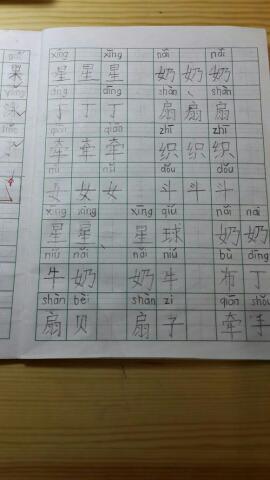 xīng xīng nǎi nǎi
星 星 星 奶 奶 奶
dīng dīng shàn shàn
丁 丁 丁 扇 扇 扇
qiān qiān zhī zhī
牵 牵 牵 织 织 织
nǚ nǚ dǒu dǒu
女 女 女 斗 斗 斗
xīng xing xīng qiú nǎi nai
星 星 星 球 奶 奶
niú nǎi nǎi niú bù dīng
牛 奶 奶 牛 布 丁
shàn bèi shàn zi qiān shǒu
扇 贝 扇 子 牵 手